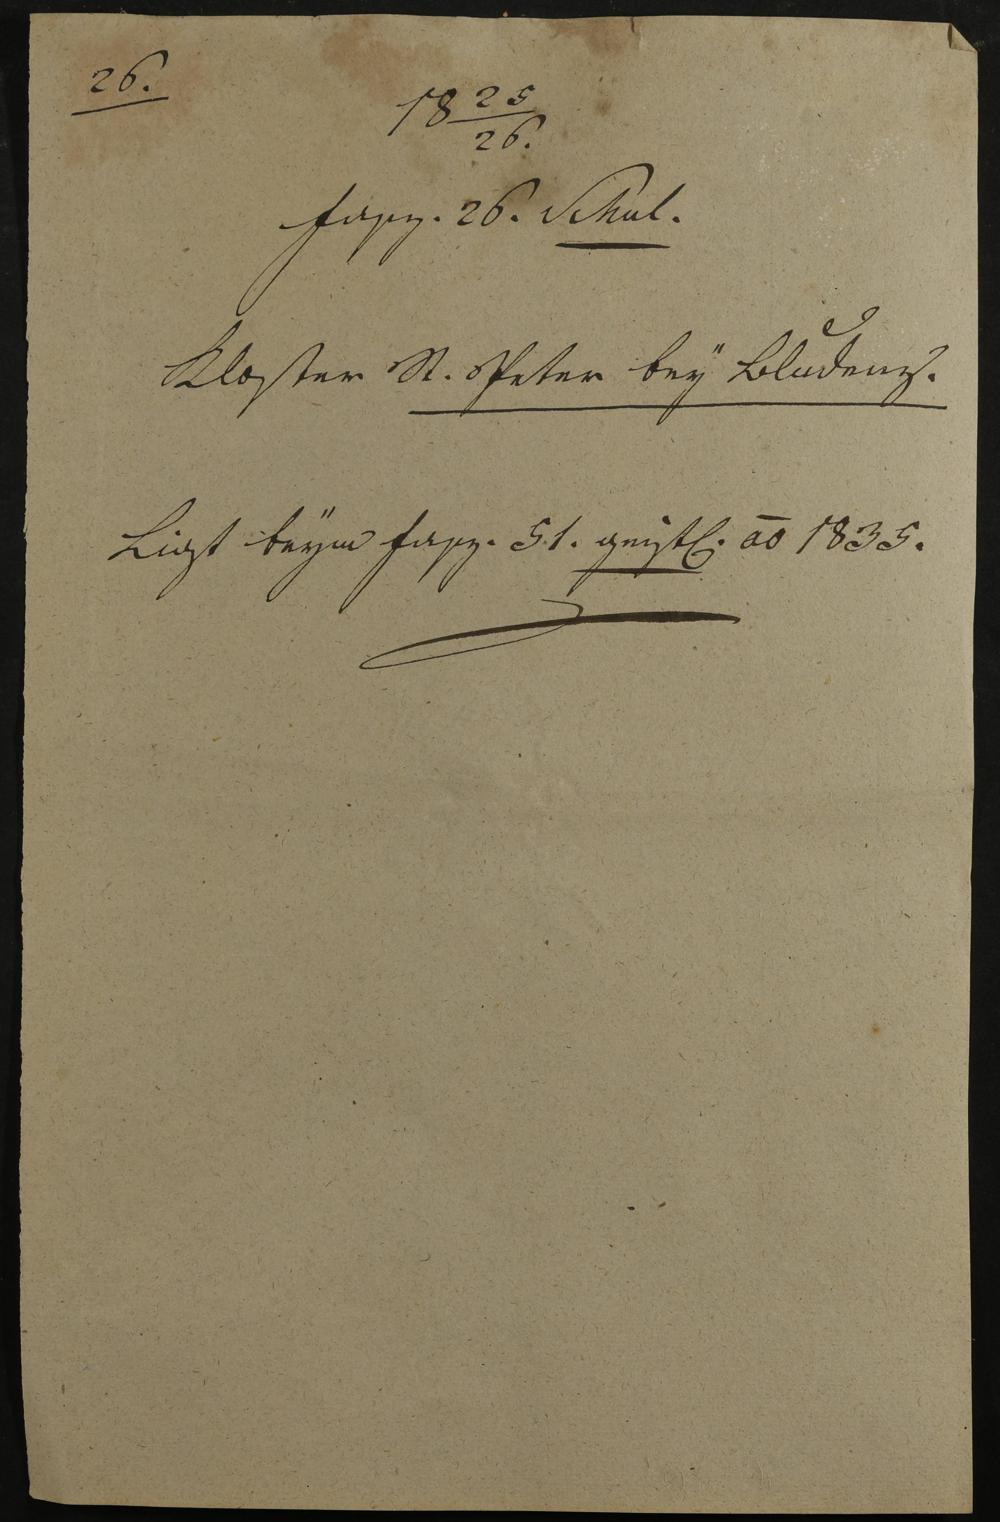 26.
18 25/26.
Fasz. 26. Schul.
Kloster St. Peter bey Bludenz.
Ligt beym Fasz. 51. geistl. ao 1835.